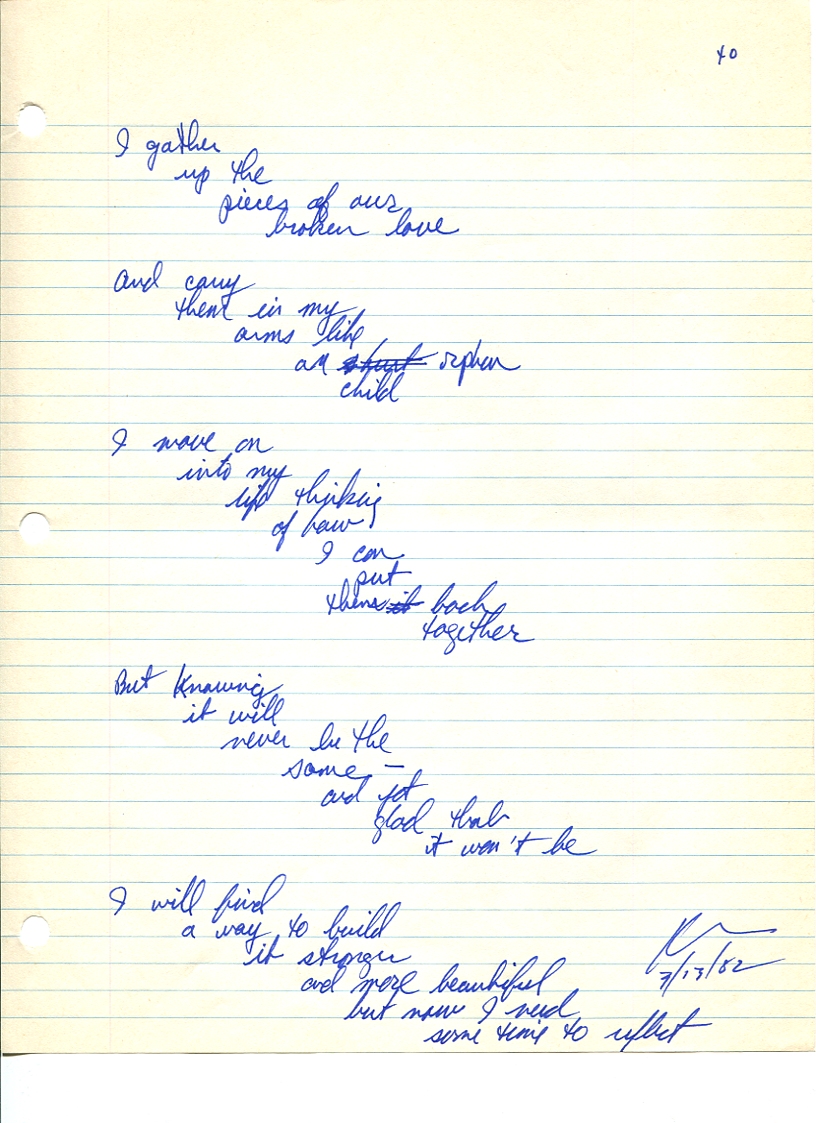 40
I gather
up the
pieces of our
broken love
And carry
them in my
arms like
an orphan
child
I move on
into my
life thinking
of how
I can
put
them it back
together
But Knowing
it will
never be the
same —
and yet
glad that
it won't be
I will find
a way to build
it stronger
and more beautiful
but now I need
some time to reflect
3/13/82